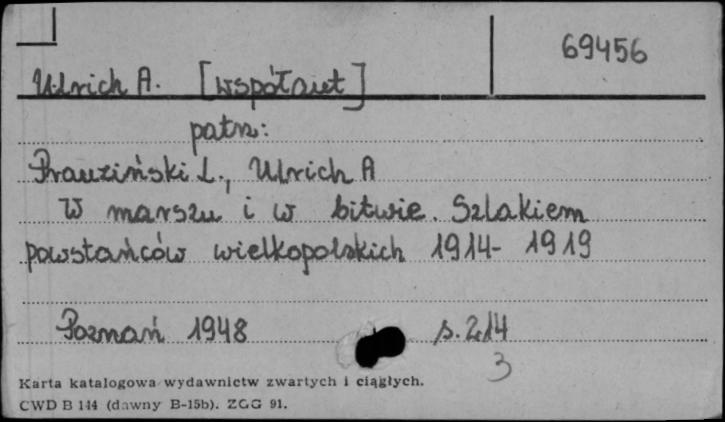 69456
Ulrich A. [współaut]
patrz:
Prauziński L., Ulrich A
W marszu i w bitwie. Szlakiem
powstańców wielkopolskich 1914-1919
Poznań 1948 s. 214
3
Karta katalogowa wydawnictw zwartych i ciągłych.
CWD B 144 (dawny B-15b). ZGG 91.